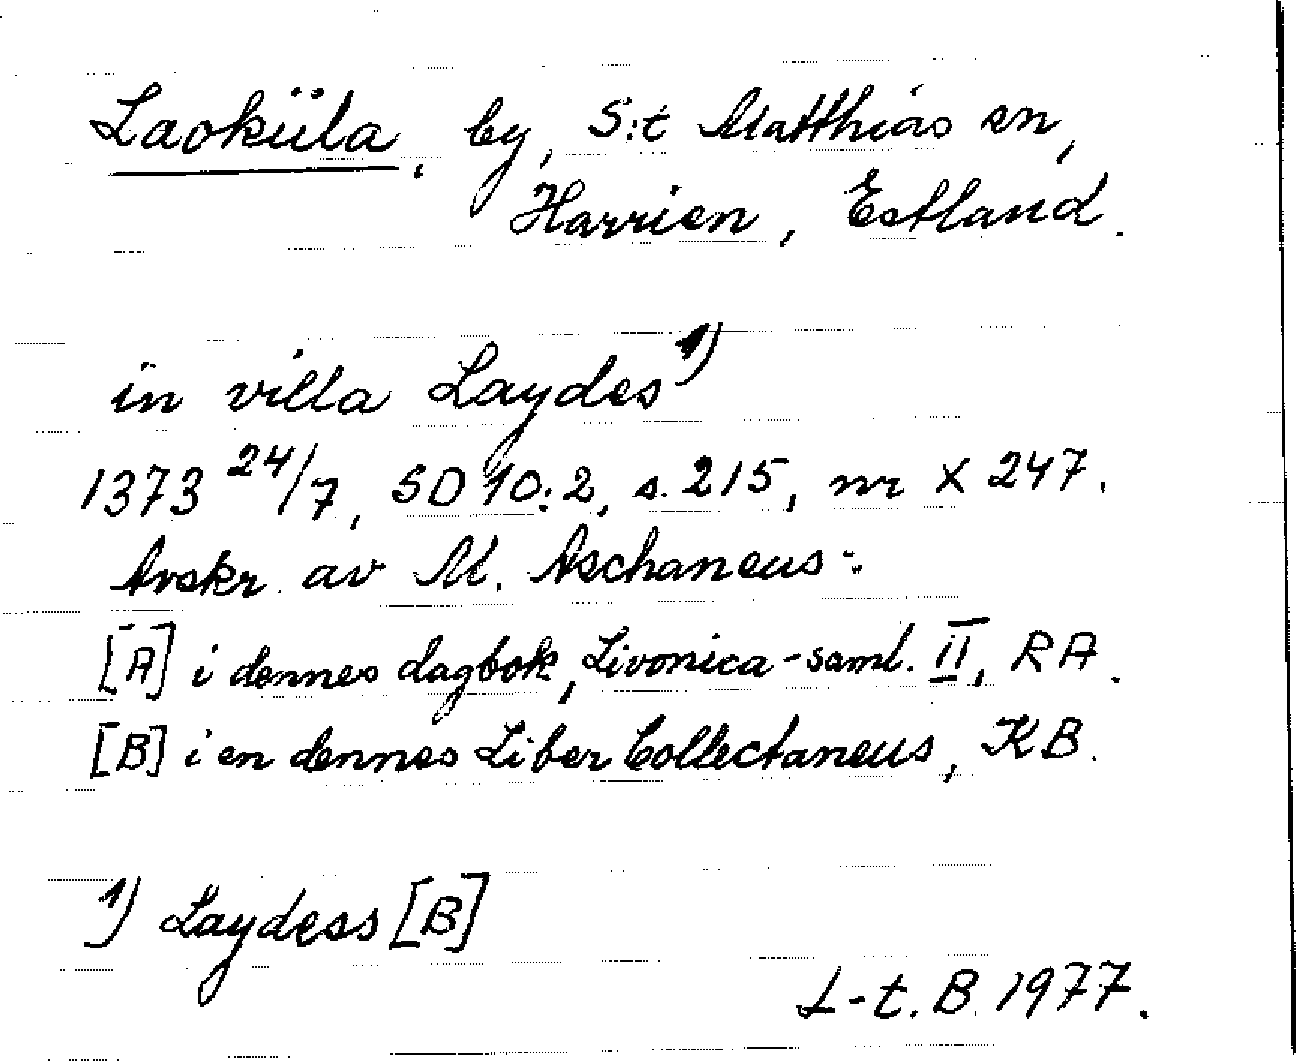 Laoküla, by, S:t Matthias sn,
Harrien, Estland.
in villa Laydes 1)
1373 24/7, SD 10:2, s. 215, nr X 247.
Avskr. av M. Aschaneus:
[A] i dennes dagbok, Livonica-saml. II, RA.
[B] i en dennes Liber Collectaneus, KB.
1) Laydess [B]
L-t. B. 1977.